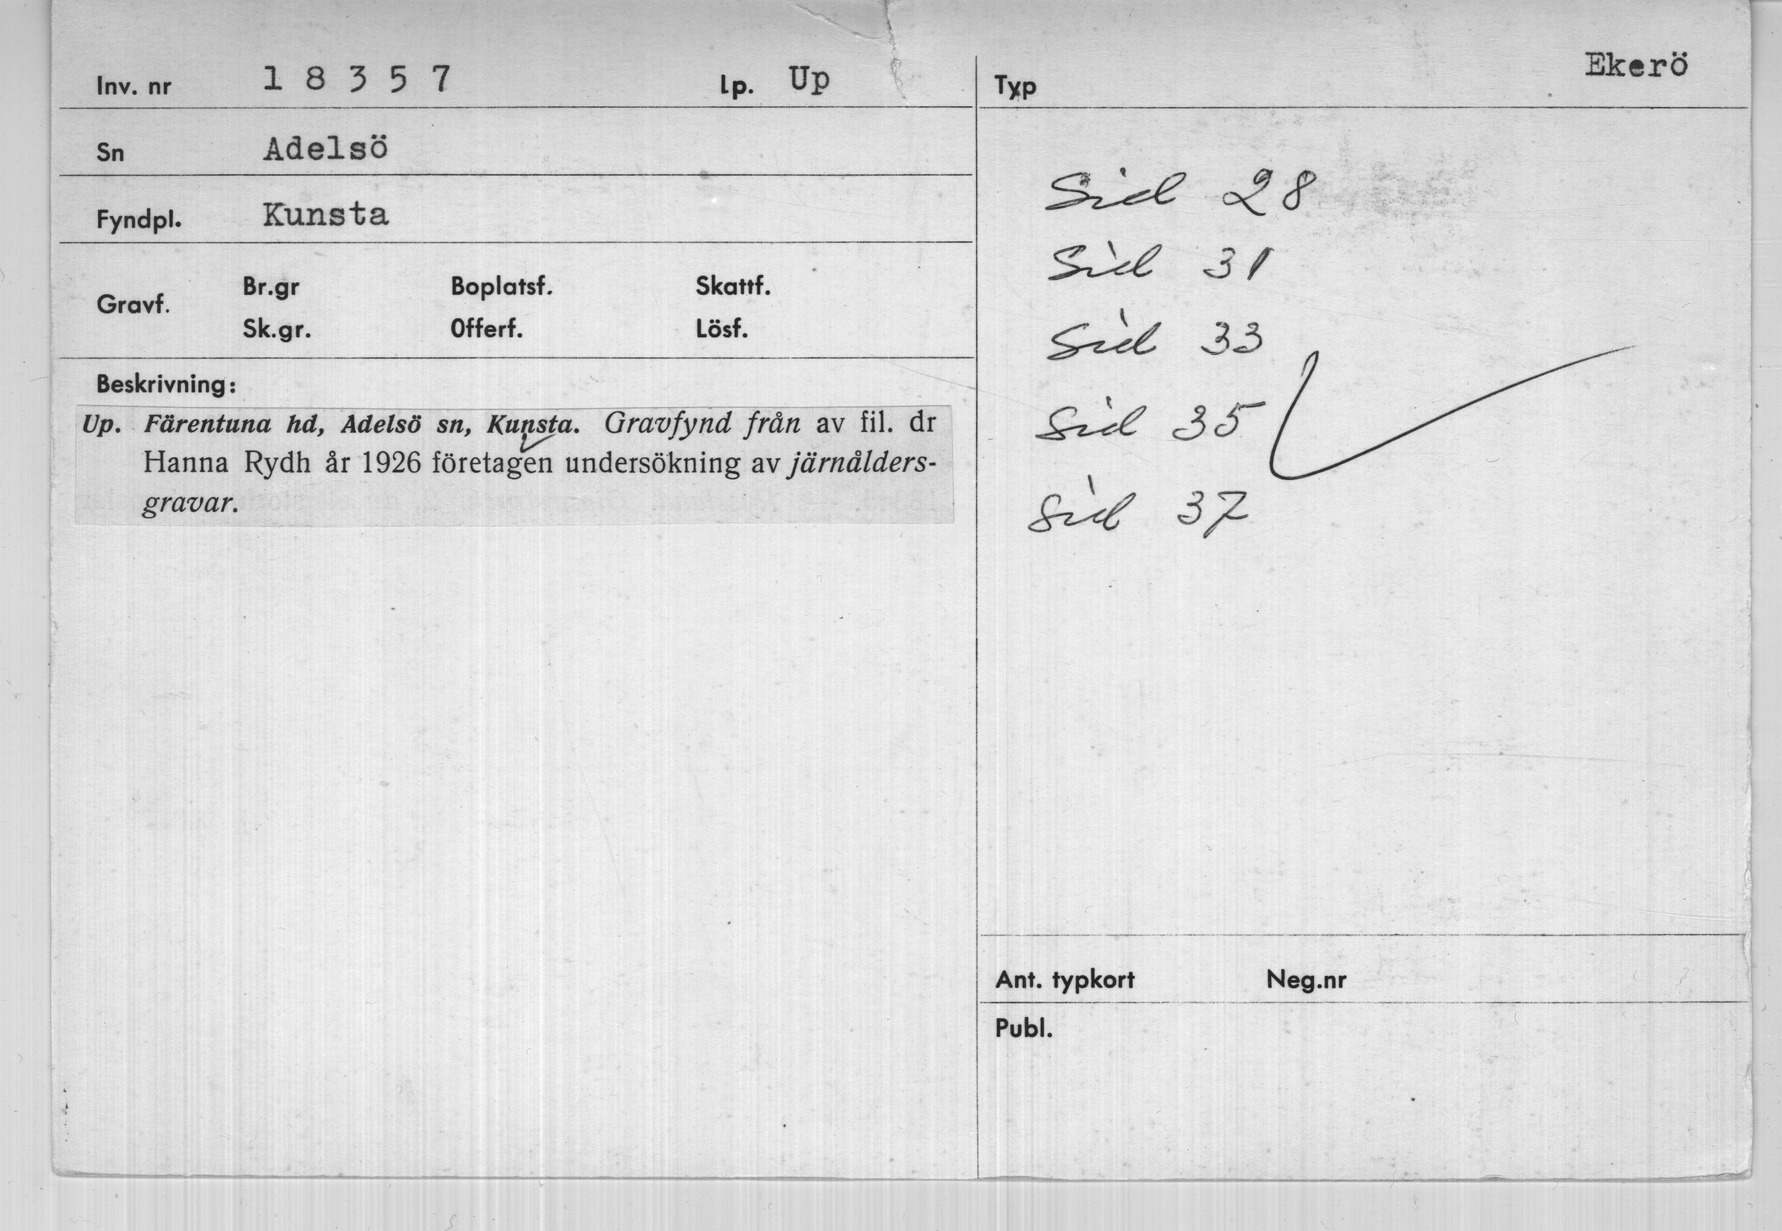 Inv. nr 18357 Lp. Up
Sn Adelsö
Fyndpl. Kunsta
Gravf. Br.gr Boplatsf. Skattf.
Sk.gr. Offerf. Lösf.
Beskrivning:
Up. Färentuna hd, Adelsö sn, Kunsta. Gravfynd från av fil. dr
Hanna Rydh år 1926 företagen undersökning av järnålders-
gravar.
Ekerö
Typ
Sid 28
Sid 31
Sid 33
Sid 35
Sid 37
Ant. typkort Neg.nr
Publ.